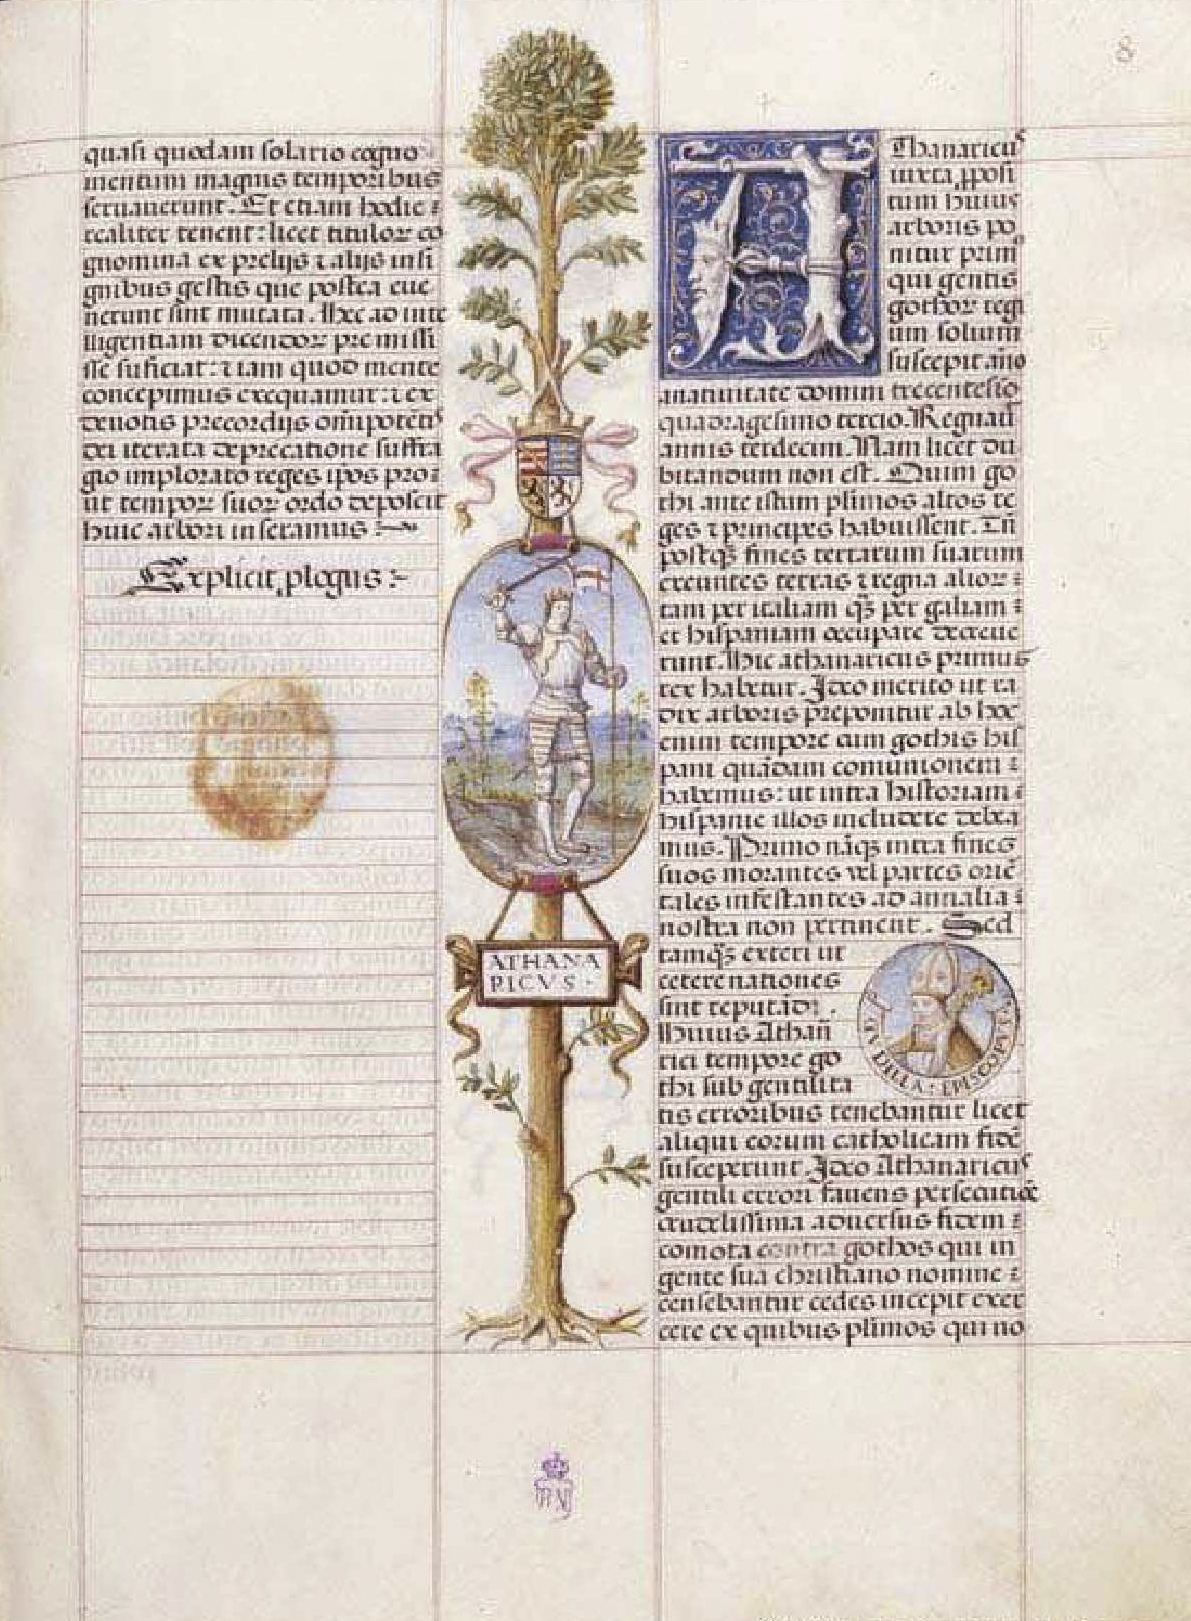 8
quasi quodam solatio cogno
mentum magnis temporibus
seruauerunt. Et etiam hodie :
realiter tenent: licet titulor co
gnomina ex prelijs ⁊ alijs insi
gnibus gestis que postea eue
nerunt sint mutata. Hec ad inte
lligentiam dicendor premissi
sse suficiat: ⁊ iam quod mente
concepimus exequamur: ⁊ ex
deuotis precordijs om̄ipotēti
dei iterata deprecatione suffra
gio implorato reges ip̄os pro:
ut tempor suor ordo deposcit
huic arbori inseramus :~
Explicit plogus :~
ATHANA
RICVS ·
Thanaricus
iuxta pposi
tum huius
arboris po
nitur prim
qui gentis
gothor regi
um solium
suscepit año
anatiuitate domini trecentesiō
quadragesimo tercio. Regnauit
annis terdecim. Nam licet du
bitandum non est. Quim go
thi ante istum pl̄imos altos re
ges ⁊ principes habuissent. Tn̄
postq̄ȝ fines terrarum suarum
exeuntes terras ⁊ regna alior :
tam per italiam q̄ȝ per galiam :
et hispaniam occupare decreue
runt. Hic athanaricus primus
rex habetur. Ideo merito ut ra
dix arboris preponitur ab hoc
enim tempore cum gothis his
pani quādam comunionem :
habemus: ut intra historiam :
hispanie illos includere debea
mus. Primo nāqȝ intra fines
suos morantes vel partes oriē
tales infestantes ad annalia :
nostra non pertinent. Sed
tamq̄ȝ exteri ut
cetere nationes
sint reputādi.
Huius Athan
rici tempore go
thi sub gentilita
EPISCOPVS
tis erroribus tenebantur licet
aliqui eorum catholicam fidē
susceperunt. Ideo Athanaricus
gentili errori fauens persecutiōe
crudelissima aduersus fidem :
comota contra gothos qui in
gente sua christiano nomine :
censebantur cedes incepit exer
cere ex quibus pl̄imos qui no